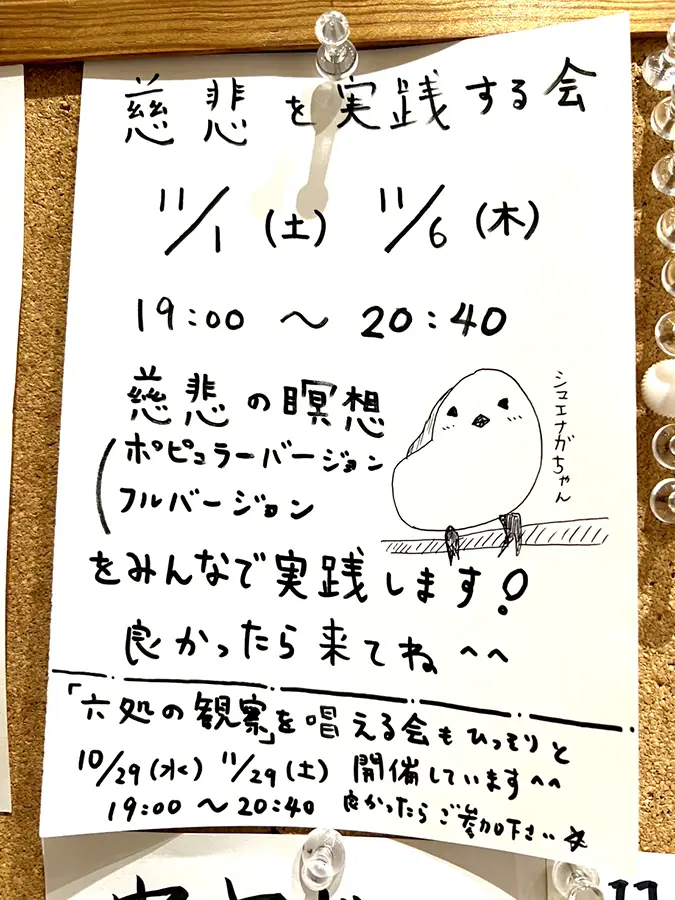 慈悲を実践する会
11/1(土) 11/6(木)
19:00 〜 20:40
慈悲の瞑想
ポピュラーバージョン
フルバージョン
シマエナガちゃん
をみんなで実践します!
良かったら来てね^^
「六処の観察」を唱える会もひっそりと
10/29(水) 11/29(土) 開催しています^^
19:00 〜20:40 良かったらご参加下さい☆